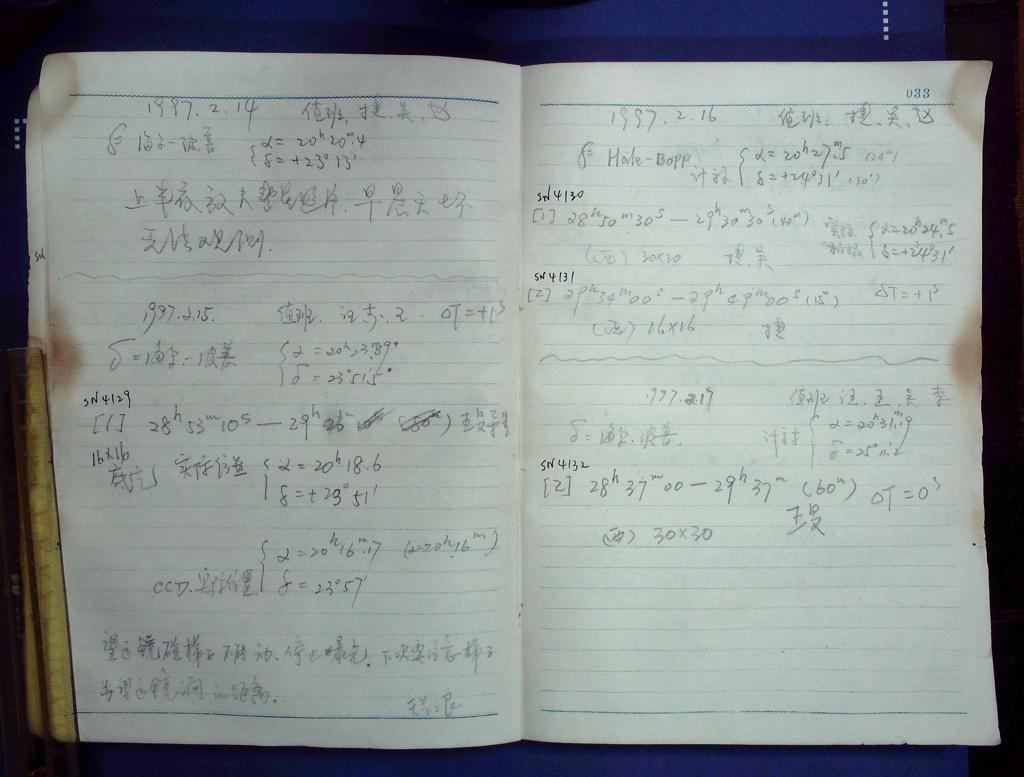 1997.2.14 值班: 捷.吴.赵
海尔-波普 { α=20ʰ20ᵐ.4
δ=+23°13'
上半夜放大彗星照片.早晨天坏
无法观测.
1997.2.15. 值班: 汪 王. ΔT=+1ˢ
=海尔-波普 { α=20ʰ23ᵐ.89
δ=23°51'.5
SN4129
[1] 28ʰ53ᵐ10ˢ — 29ʰ
16×16 实际位置 { α=20ʰ18.6
δ=+23°51'
{ α=20ʰ16ᵐ.17 (α=20ʰ16ᵐ)
CCD.实际位置 δ=23°57'
望远镜碰梯子不转动.停止曝光.下次要注意梯子
与望远镜之间的距离.
033
1997.2.16 值班: 捷.吴.赵
Hale-Bopp { α=20ʰ27ᵐ.5 (24ᵐ)
计算 δ=+24°31' (30')
SN4130
[1] 28ʰ50ᵐ30ˢ — 29ʰ30ᵐ30ˢ (40ᵐ)
实际 { α=20ʰ24ᵐ.5
δ=+24°31'
(西) 30×30 捷.吴
SN4131
[2] 29ʰ34ᵐ00ˢ — 29ʰ49ᵐ00ˢ (15ᵐ) ΔT=+1ˢ
(西) 16×16 捷
1997.2.17 值班 汪.王.吴.李
=海尔-波普. 计算 { α=20ʰ31ᵐ.19
δ=25°11'.2
SN4132
[2] 28ʰ37ᵐ00 — 29ʰ37ᵐ (60ᵐ) ΔT=0ˢ
(西) 30×30